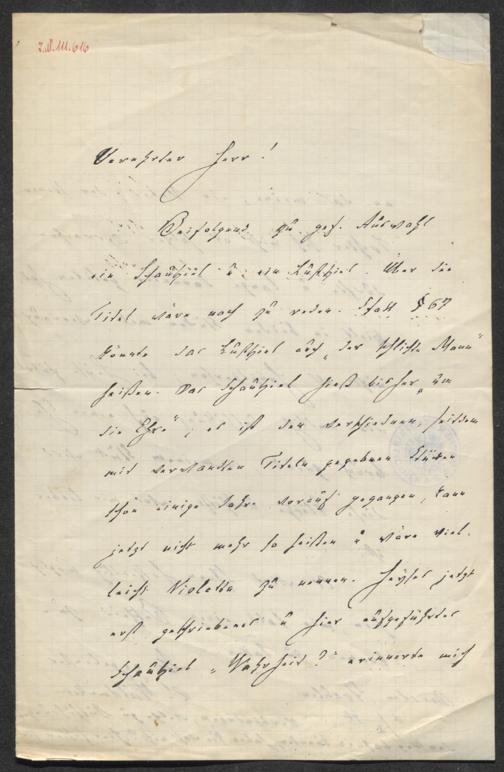 Z.N. III.616
Verehrter Herr!
Beifolgend zu gef. Auswahl
ein Schauspiel u. ein Lustspiel. Über die
Titel wäre noch zu reden. Statt § 67
könnte das Lustspiel auch „der schlichte Mann“
heißen. Das Schauspiel hieß bisher „um
die Ehre“, es ist den verschiedenen, seitdem
mit verwandten Titeln gegebenen Stücken
schon einige Jahre voraus gegangen, kann
jetzt nicht mehr so heißen u wäre viel-
leicht Violetta zu nennen. Heyses jetzt
erst geschriebenes u hier aufgeführtes
Schauspiel „Wahrheit?“ erinnerte mich